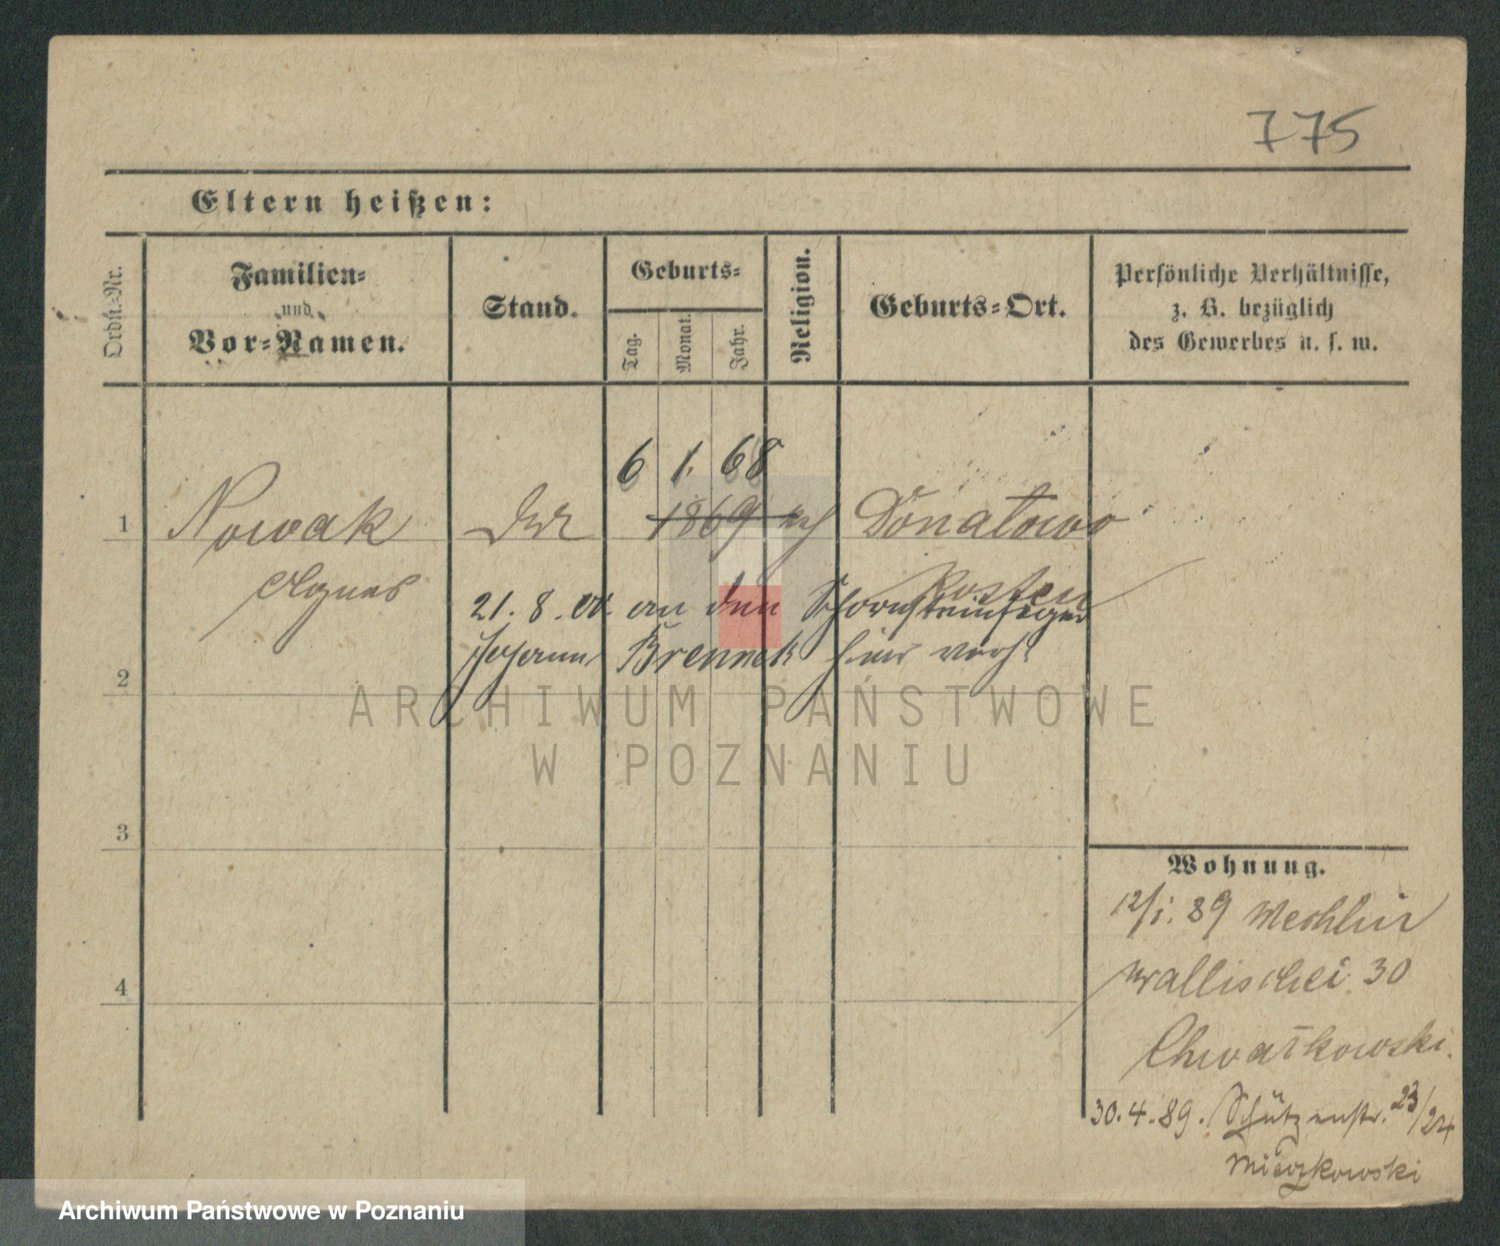 775
Eltern heißen:
Ordn.-Nr.
Familien-
und
Vor-Namen.
Stand.
Geburts-
Tag.
Monat.
Jahr.
Religion.
Geburts-Ort.
Persönliche Verhältnisse,
z. B. bezüglich
des Gewerbes u. s. w.
6 1. 68
1 Nowak 1869 Donatowo
Agnes Kosten
21. 8. an den Schornsteinfeger
Johann Brennek hier verh.
2
ARCHIWUM PAŃSTWOWE
W POZNANIU
3
Wohnung.
12/1. 89
4 Wallischei 30
Chwałkowski.
30. 4. 89. Schützenstr. 23/24
Mieczkowski
Archiwum Państwowe w Poznaniu